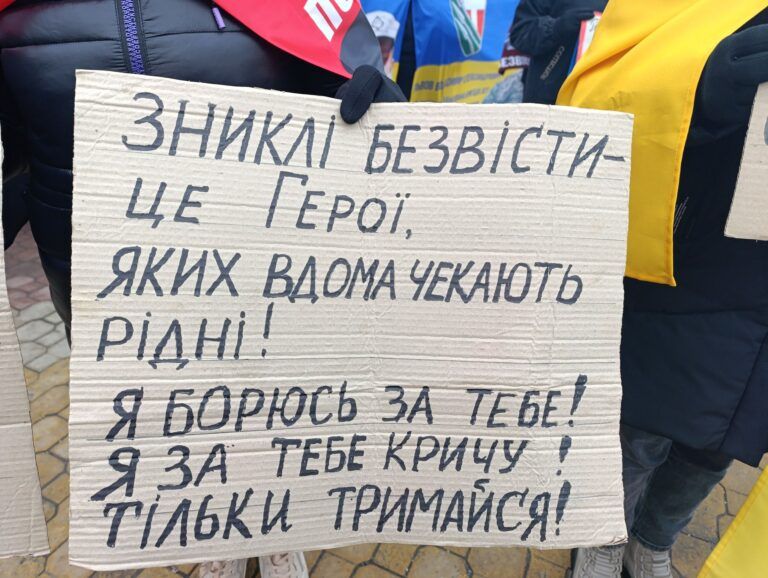 ЗНИКЛІ БЕЗВІСТИ-
ЦЕ ГЕРОЇ,
ЯКИХ ВДОМА ЧЕКАЮТЬ
РІДНІ!
Я БОРЮСЬ ЗА ТЕБЕ!
Я ЗА ТЕБЕ КРИЧУ!
ТІЛЬКИ ТРИМАЙСЯ!